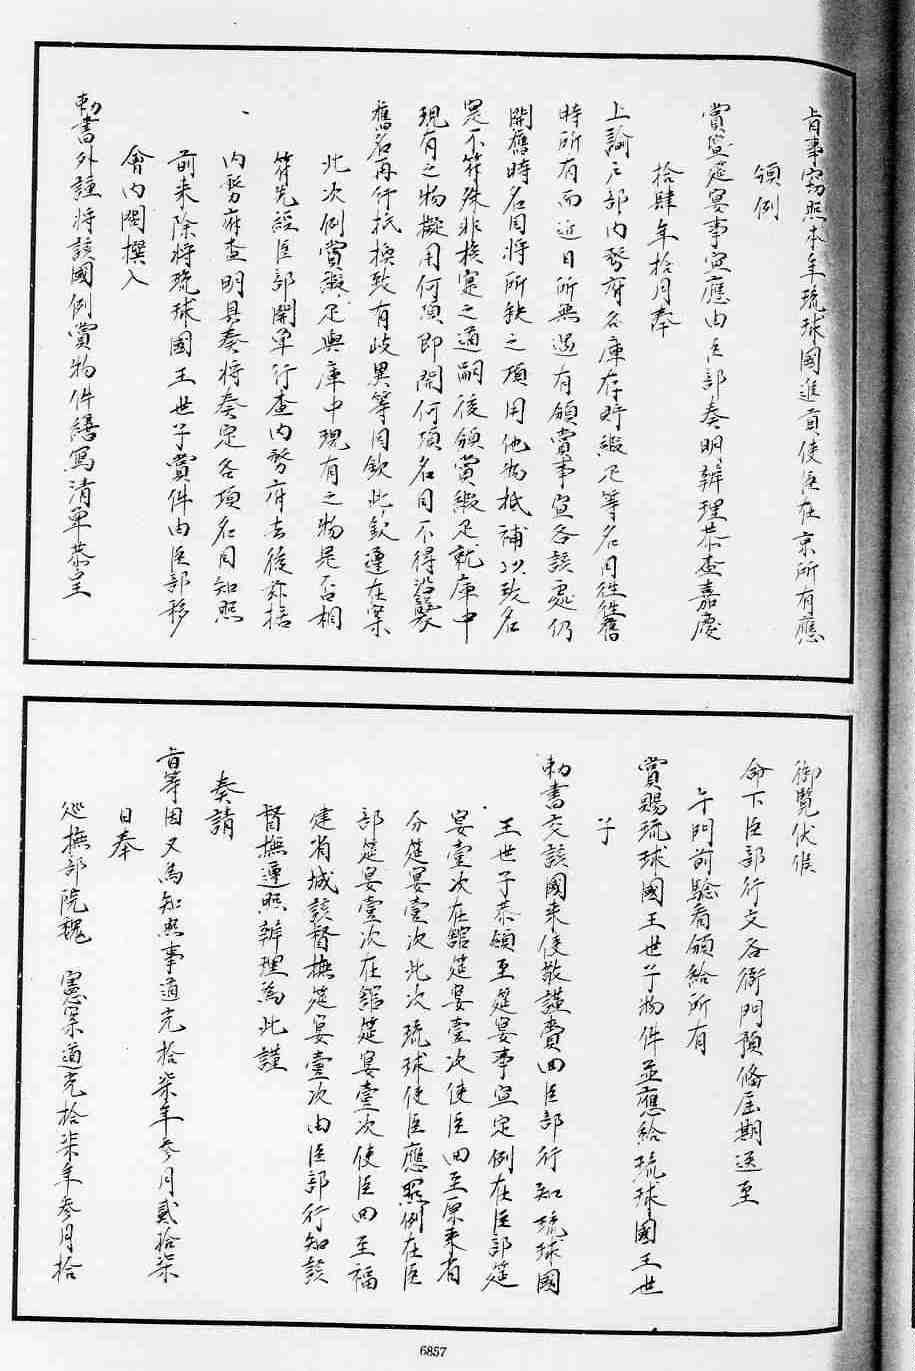 旨事窃照本年琉球國進貢使臣在京所有應
領例
賞筵宴事宜應由臣部奏明辦理恭查嘉慶
拾肆年拾月奉
上諭戸部内務府各庫存貯緞疋等名目徃徃舊
時所有而近日所無遇有頒賞事宜各該處仍
開舊時名目将所缺之項用他物抵補以致名
寔不符殊非核寔之道嗣後頒賞緞疋就庫中
現有之物擬用何項即開何項名目不得沿襲
舊名再行抵換致有歧異等因欽此欽遵在案
此次例賞緞疋與庫中現有之物是否相
符先經臣部開单行查内務府去後茲據
内務府查明具奏将奏定各項名目知照
前来除将琉球國王世子賞件由臣部移
會内閣撰入
勅書外謹将該國例賞物件繕寫清单恭呈
御覽伏候
命下臣部行文各衙門預俻届期送至
午門前驗看頒給所有
賞賜琉球國王世子物件並應給琉球國王世
子
勅書交該國来使敬謹賫回臣部行知琉球國
王世子恭領至筵宴事宜定例在臣部筵
宴壹次在舘筵宴壹次使臣回至原来省
分筵宴壹次此次琉球使臣應照例在臣
部筵宴壹次在舘筵宴壹次使臣回至福
建省城該督撫筵宴壹次由臣部行知該
督撫遵照辦理為此謹
奏請
旨等因又為知照事道光拾柒年參月貳拾柒
日奉
巡撫部院魏 憲案道光拾柒年參月拾
6857